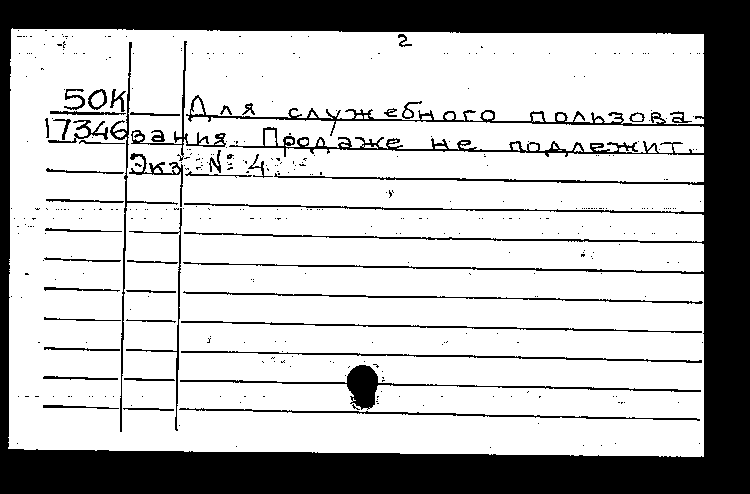 2
50К Для служебного пользова-
17346 вания. Продаже не подлежит.
Экз. № 4